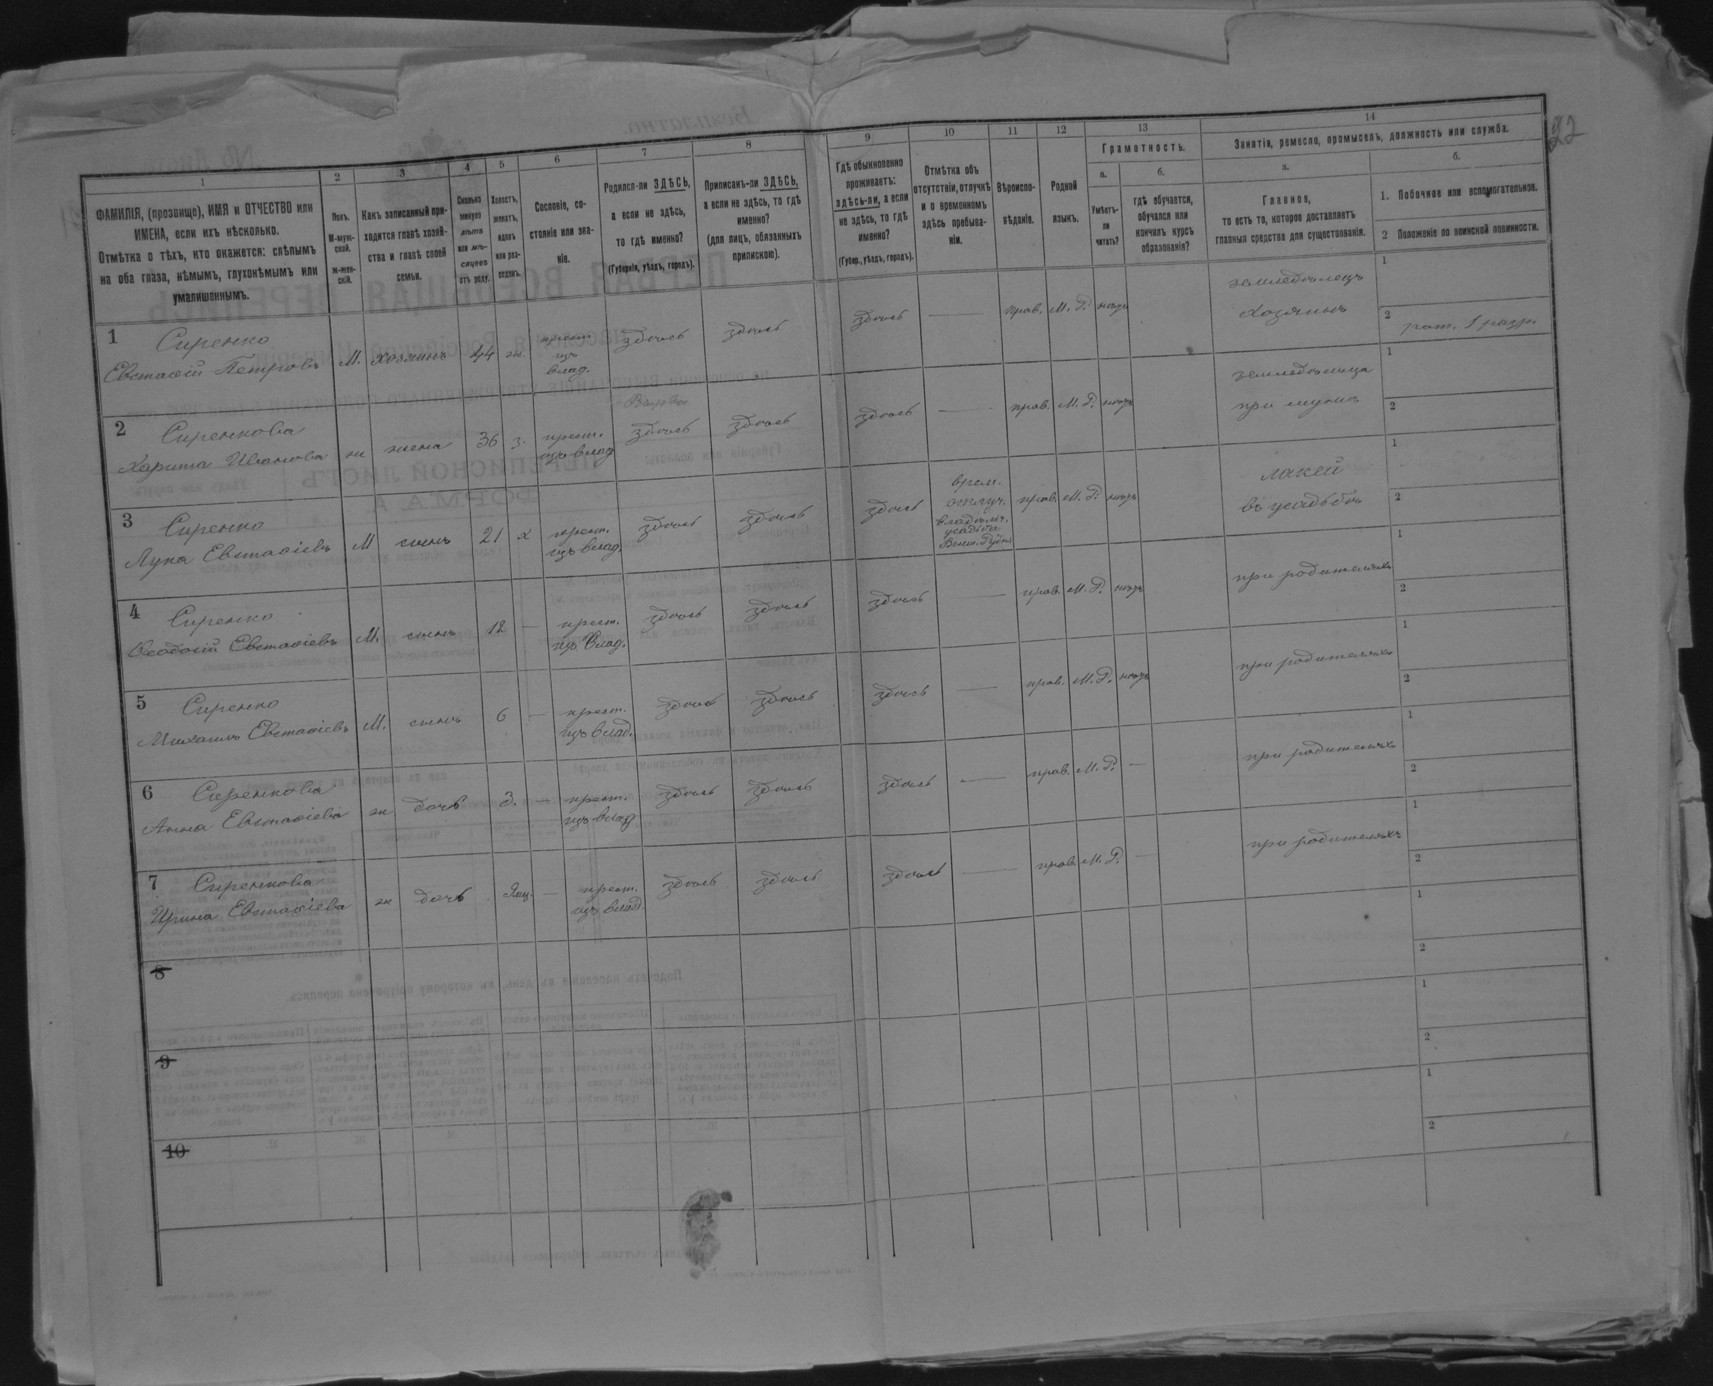 22
1
ФАМИЛІЯ, (прозвище), ИМЯ и ОТЧЕСТВО или
ИМЕНА, если ихъ нѣсколько.
Отмѣтка о тѣхъ, кто окажется: слѣпымъ
на оба глаза, нѣмымъ, глухонѣмымъ или
умалишеннымъ.
2
Полъ.
М-муж-
ской.
ж-жен-
скій.
3
Какъ записанный при-
ходится главѣ хозяй-
ства и главѣ своей
семьи.
4
Сколько
минуло
лѣтъ
или мѣ-
сяцевъ
отъ роду.
5
Холостъ,
женатъ,
вдовъ
или раз-
веденъ.
6
Сословіе, со-
стояніе или зва-
ніе.
7
Родился-ли ЗДѢСЬ,
а если не здѣсь,
то гдѣ именно?
(Губернія, уѣздъ, городъ).
8
Приписанъ-ли ЗДѢСЬ,
а если не здѣсь, то гдѣ
именно?
(для лицъ, обязанныхъ
припискою).
9
Гдѣ обыкновенно
проживаетъ:
здѣсь-ли, а если
не здѣсь, то гдѣ
именно?
(Губер., уѣздъ, городъ).
10
Отмѣтка объ
отсутствіи, отлучкѣ
и о временномъ
здѣсь пребыва-
ніи.
11
Вѣроиспо-
вѣданіе.
12
Родной
языкъ.
13
Грамотность.
а.
Умѣетъ-
ли
читать?
б.
гдѣ обучается,
обучался или
кончилъ курсъ
образованія?
14
Занятія, ремесло, промыселъ, должность или служба.
а.
Главное,
то есть то, которое доставляетъ
главныя средства для существованія.
б.
1. Побочное или вспомогательное.
2 Положеніе по воинской повинности.
1
Сиренко
Евстафій Петровъ
М. хозяинъ 44 ж. крест.
изъ
влад.
здѣсь здѣсь здѣсь — прав. М. Р. нѣтъ
земледѣлецъ
хозяинъ
1
2
рат. 1 разр.
2
Сиренкова
Харитина Иванова
ж жена 36 з. крест.
изъ влад
здѣсь здѣсь здѣсь — прав. М. Р. нѣтъ
земледѣлица
при мужѣ
1
2
3
Сиренко
Лука Евстафіевъ
М сынъ 21 х крест.
изъ влад.
здѣсь здѣсь здѣсь
врем.
отлуч.
владѣльч.
усадьба
прав. М. Р. нѣтъ
лакей
въ усадьбѣ
1
2
4
Сиренко
Ѳеодосій Евстафіевъ
М. сынъ 12 — крест.
изъ влад.
здѣсь здѣсь здѣсь — прав. М. Р. нѣтъ
при родителяхъ
1
2
5
Сиренко
Михаилъ Евстафіевъ
М. сынъ 6 — крест.
изъ влад.
здѣсь здѣсь здѣсь — прав. М. Р. нѣтъ
при родителяхъ
1
2
6
Сиренкова
Анна Евстафіева
ж дочь 3. — крест.
изъ влад
здѣсь здѣсь здѣсь — прав. М. Р. —
при родителяхъ
1
2
7
Сиренкова
Ирина Евстафіева
ж дочь — крест.
изъ влад
здѣсь здѣсь здѣсь — прав. М. Р. —
при родителяхъ
1
2
8
1
2
9
1
2
10
1
2